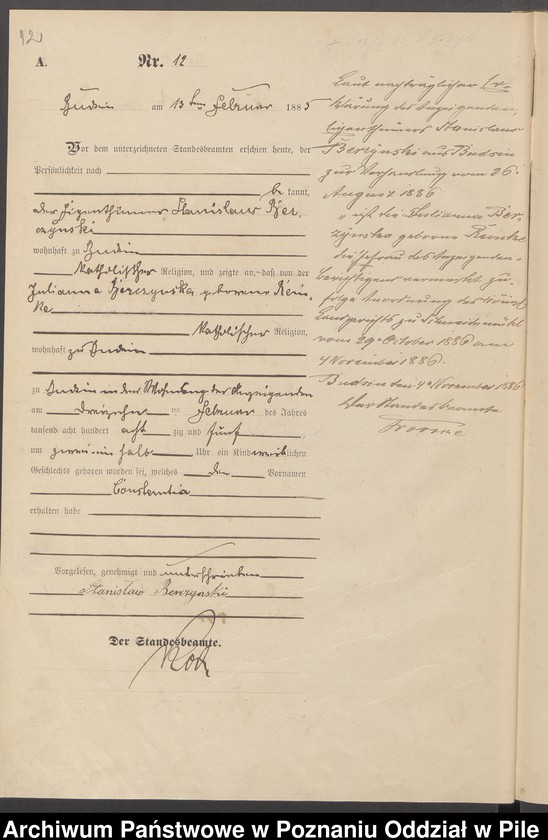 12
A.
Nr. 12
Budsin am 13ten Februar 1885
Vor dem unterzeichneten Standesbeamten erschien heute, der
Persönlichkeit nach
be kannt,
der Eigenthümer Stanislaus Ber-
czynski
wohnhaft zu Budsin
Katholischer Religion, und zeigte an, daß von der
Julianna Berczynska geborene Rein-
ke
Katholischer Religion,
wohnhaft zu Budsin
zu Budsin in der Wohnung des Anzeigenden
am dreizehn ten Februar des Jahres
tausend acht hundert acht zig und fünf
um zwei ein halb Uhr ein Kind weiblichen
Geschlechts geboren worden sei, welches den Vornamen
Constantia
erhalten habe
Vorgelesen, genehmigt und unterschrieben
Stanislaw Berczynski
Der Standesbeamte.
Laut nachträglicher Er-
klärung des Anzeigenden,
Eigenthümers Stanislaus
Berzynski aus Budsin
zur Verhandlung vom 26.
August 1886
ist die Julianna Ber-
zynska geborene Reinke
die Ehefrau des Anzeigenden.
Berichtigend vermerkt zu-
folge Anordnung des Königl.
Landgerichts zu Schneidemühl
vom 29. October 1886 am
4 November 1886.
Budsin den 4. November 1886
Der Standesbeamte
Archiwum Państwowe w Poznaniu Oddział w Pile